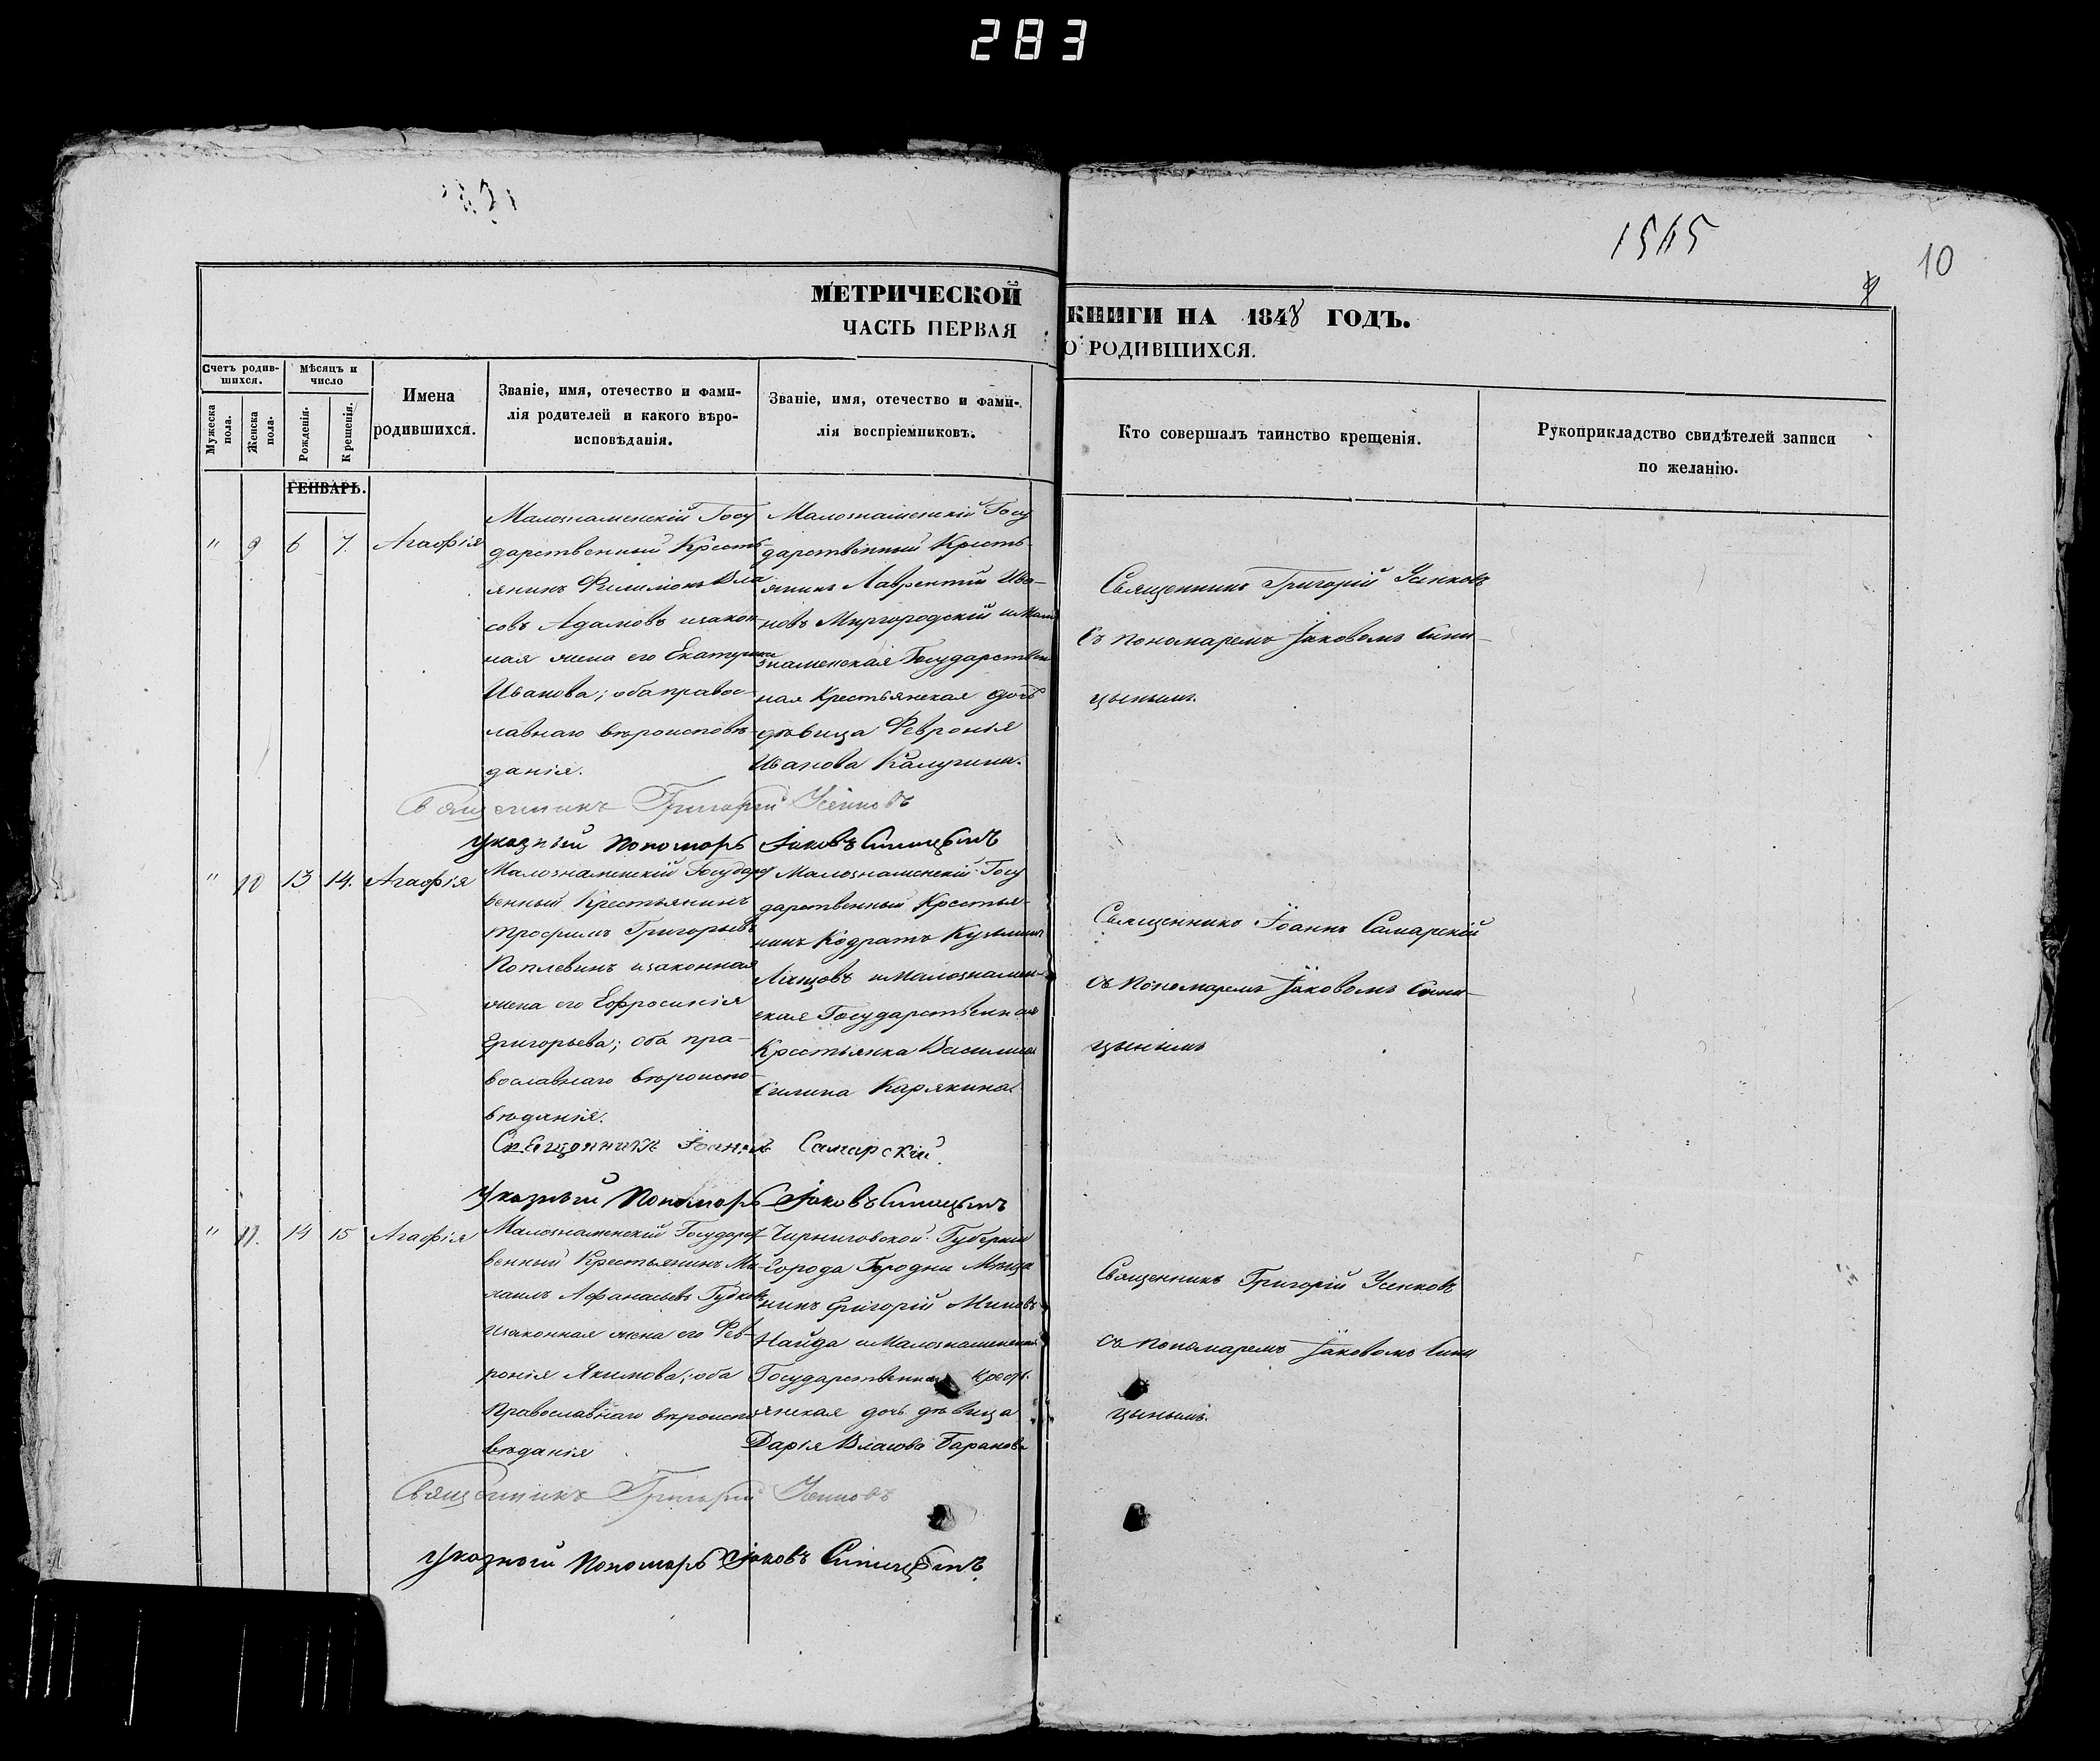 283
1545
10
МЕТРИЧЕСКОЙ КНИГИ НА 1848 ГОДЪ.
ЧАСТЬ ПЕРВАЯ О РОДИВШИХСЯ.
Счетъ родив-
шихся.
Мужеска
пола.
Женска
пола.
Мѣсяцъ и
число
Рожденія.
Крещенія.
Имена
родившихся.
Званіе, имя, отечество и фами-
лія родителей и какого вѣро-
исповѣданія.
Званіе, имя, отечество и фами-
лія воспріемниковъ.
Кто совершалъ таинство крещенія.
Рукоприкладство свидѣтелей записи
по желанію.
ГЕНВАРЬ.
" 9 6 7. Агафія
Малознаменскій Госу
дарственный Кресть-
янинъ Филимонъ Вла
совъ Адамовъ изакон
ная жена его Екатерина
Иванова; оба правос-
лавнаго вѣроисповѣ-
данія.
Малознаменскій Госу
дарственный Кресть-
янинъ Лаврентій Ива-
новъ Миргородскій и Мало
знаменская Государствен
ная Крестьянская дочь
дѣвица Февронія
Иванова Калугина.
Священникъ Григорій Усенковъ
съ пономаремъ Іаковомъ Сини-
цынымъ.
Священникъ Григорій Усенковъ
Указный Пономарь Іаковъ Синицынъ
" 10 13 14. Агафія
Малознаменскій Государст
венный Крестьянинъ
Трофимъ Григорьевъ
Поплевинъ изаконная
жена его Ефросинія
Григорьева; оба пра-
вославнаго вѣроиспо-
вѣданія.
Малознаменскій Госу
дарственный Крестья-
нинъ Кодратъ Кузьминъ
и Малознамен-
ская Государственная
Крестьянка Василиса
Силина Карякина.
Священникъ Іоаннъ Самарскій
съ Пономаремъ Іаковомъ Сини-
цынымъ
Священникъ Іоаннъ Самарскій.
Указный Пономарь Іаковъ Синицынъ
" 11. 14 15 Агафія
Малознаменскій Государст
венный Крестьянинъ Ми-
хаилъ Афанасьевъ Гудковъ
изаконная жена его Фев-
ронія Якимова; оба
Православнаго вѣроиспо
вѣданія
Чирниговской Губерніи
Города Городни Мѣща
нинъ Григорій Миновъ
Найда и Малознаменская
Государственная Кресть
янская дочь дѣвица
Дарія Власова Баранова
Священникъ Григорій Усенковъ
съ Пономаремъ Іаковомъ Сини
цынымъ.
Священникъ Григорій Усенковъ
Указный Пономарь Іаковъ Синицынъ.